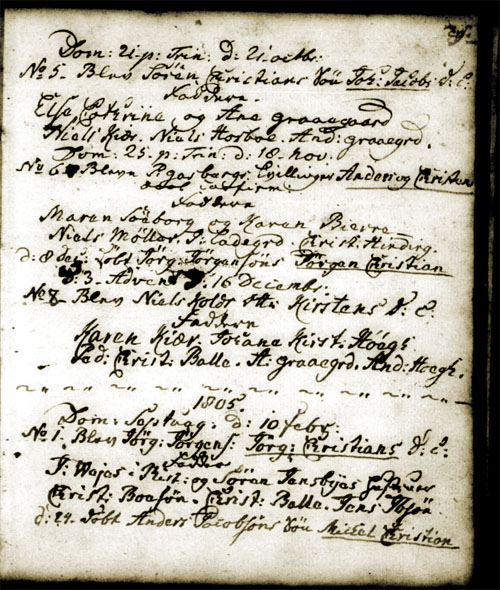 Dom: 21. p: Trin: d: 21 octbr:
No 5. Blev Sören Christians Sön Joh: Jacob d: C:
Faddere.
Else Cathrine og Ane graaegaard
Niels Kiær. Niels Horboe. And: graaegrd.
Dom: 25. p: Trin: d: 18. nov:
No 6. Blev P. Tvillinger Anders og Christen
Faddere
Maren Söeborg og Karen Bierre
Niels Möller. P: Ladegrd. Christ: Hinding.
d: 8 Dec: Jörg: Jörgensöns Jörgen Christian
d: 3. Advent d: 16 Decembr.
No 8. Blev Niels Holds Kirstens d: C:
Faddere
Karen Kiær. Johane Kirst: Höegs
Christ: Balle. A: graaegrd. And: Hoegh.
1805.
Dom: d: 10 febr:
No 1. Blev Jörg: Jörgens: Jörg: Christians d: C:
Faddere
og Sören Hustruer
Christ: Boesön. Christ: Balle. Jens Ibsön
d: 24. döbt Anders Jacobsöns Sön Michel Christian